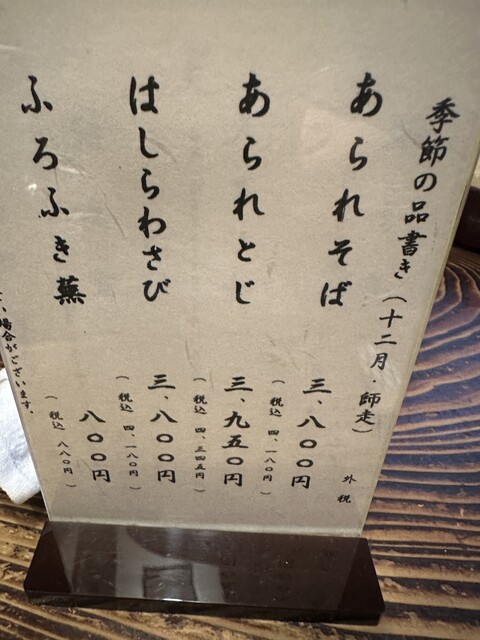 季節の品書き(十二月・師走)
外税
あられそば 三、八〇〇円
(税込 四、一八〇円)
あられとじ 三、九五〇円
(税込 四、三四五円)
はしらわさび 三、八〇〇円
(税込 四、一八〇円)
ふろふき蕪 八〇〇円
(税込 八八〇円)
い場合がございます。